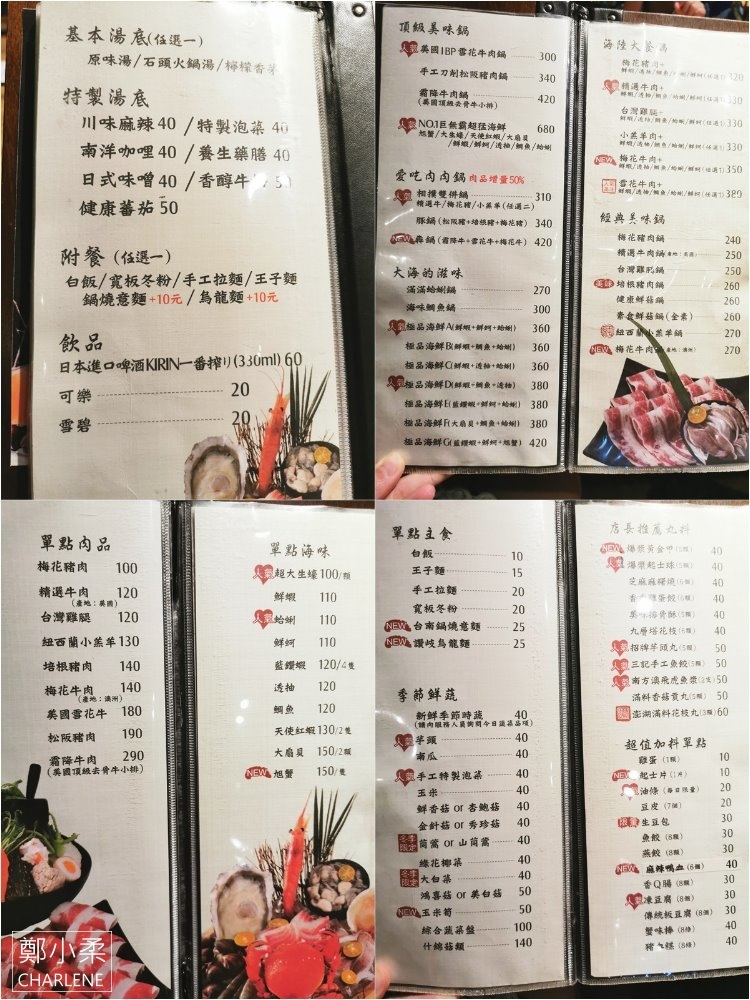 基本湯底(任選一)
原味湯/石頭火鍋湯/檸檬香茅
特製湯底
川味麻辣 40 / 特製泡菜 40
南洋咖哩 40 / 養生藥膳 40
日式味噌 40 / 香醇牛 50
健康蕃茄 50
附餐 (任選一)
白飯/寬板冬粉/手工拉麵/王子麵
鍋燒意麵+10元 / 烏龍麵+10元
飲品
日本進口啤酒KIRIN一番搾り(330ml) 60
可樂 20
雪碧 20
頂級美味鍋
人氣 英國1BP雪花牛肉鍋 300
手工刀削松阪豬肉鍋 340
霜降牛肉鍋 420
(英國頂級去骨牛小排)
人氣 NO.1巨無霸超猛海鮮 680
旭蟹/大生蠔/天使紅蝦/大扇貝
/鮮蝦/鮮蚵/透抽/鯛魚/蛤蜊
愛吃肉肉鍋 肉品增量50%
人氣 相撲雙併鍋 310
精選牛/梅花豬/小羔羊(任選二)
豚鍋(松阪豬+培根豬+梅花豬) 340
NEW 犇鍋(霜降牛+雪花牛+梅花牛) 420
大海的滋味
滿滿蛤蜊鍋 270
海味鯛魚鍋 300
人氣 極品海鮮A(鮮蝦+鮮蚵+蛤蜊) 360
極品海鮮B(鮮蝦+鯛魚+蛤蜊) 360
極品海鮮C(鮮蝦+透抽+蛤蜊) 360
人氣 極品海鮮D(鮮蝦+鯛魚+透抽) 380
極品海鮮E(藍鑽蝦+鮮蚵+蛤蜊) 380
極品海鮮F(大扇貝+鯛魚+蛤蜊) 380
極品海鮮G(藍鑽蝦+鮮蚵+旭蟹) 420
海陸大餐鍋
梅花豬肉+
鮮蝦/透抽/鯛魚/蛤蜊/鮮蚵(任選1) 320
人氣 精選牛肉+
鮮蝦/透抽/鯛魚/蛤蜊/鮮蚵(任選1) 330
台灣雞腿+
鮮蝦/透抽/鯛魚/蛤蜊/鮮蚵(任選1) 330
小羔羊肉+
鮮蝦/透抽/鯛魚/蛤蜊/鮮蚵(任選1) 330
NEW 梅花牛肉+
鮮蝦/透抽/鯛魚/蛤蜊/鮮蚵(任選1) 350
雪花牛肉+
鮮蝦/透抽/鯛魚/蛤蜊/鮮蚵(任選1) 380
經典美味鍋
梅花豬肉鍋 240
精選牛肉鍋(產地:美國) 250
台灣雞腿鍋 250
美味 培根豬肉鍋 260
健康鮮菇鍋 260
素食鮮菇鍋(全素) 260
紐西蘭小羔羊鍋 270
NEW 梅花牛肉鍋(產地:澳洲) 270
單點肉品
梅花豬肉 100
精選牛肉 120
(產地:美國)
台灣雞腿 120
紐西蘭小羔羊 130
培根豬肉 140
梅花牛肉 140
(產地:澳洲)
英國雪花牛 180
松阪豬肉 190
霜降牛肉 290
(英國頂級去骨牛小排)
單點海味
人氣 超大生蠔 100/顆
鮮蝦 110
人氣 蛤蜊 110
鮮蚵 110
藍鑽蝦 120/4隻
透抽 120
鯛魚 120
天使紅蝦 130/2隻
大扇貝 150/2顆
NEW 旭蟹 150/隻
鄭小柔
CHARLENE
單點主食
白飯 10
王子麵 15
手工拉麵 20
寬板冬粉 20
NEW 台南鍋燒意麵 25
NEW 讚岐烏龍麵 25
季節鮮蔬
新鮮季節時蔬 40
(請向服務人員詢問今日蔬菜品項)
人氣 芋頭 40
南瓜 40
人氣 手工特製泡菜 40
玉米 40
鮮香菇 or 杏鮑菇 40
金針菇 or 秀珍菇 40
冬季限定 茼蒿 or 山茼蒿 40
綠花椰菜 40
冬季限定 大白菜 40
鴻喜菇 or 美白菇 50
NEW 玉米筍 50
綜合蔬菜盤 100
什錦菇類 140
店長推薦丸料
NEW 爆漿黃金甲(5顆) 40
人氣 爆漿起士球(5顆) 40
芝麻麻糬燒(6顆) 40
香 雞蛋餃(6顆) 40
美味排骨酥(5顆) 40
九層塔花枝(6顆) 40
人氣 招牌芋頭丸(5顆) 50
人氣 三記手工魚餃(5顆) 50
人氣 南方澳飛虎魚漿(2支) 50
滿料香菇貢丸(5顆) 50
澎湖滿料花枝丸(3顆) 60
超值加料單點
雞蛋(1顆) 10
NEW 起士片(1片) 10
人氣 油條(每日限量) 20
豆皮(7個) 20
限量 生豆包 30
魚餃(8顆) 30
燕餃(8顆) 30
NEW 麻辣鴨血(6個) 40
香Q腸(8顆) 30
人氣 凍豆腐(8個) 30
傳統板豆腐(8個) 30
蟹味棒(8條) 40
豬 糕(8條) 40